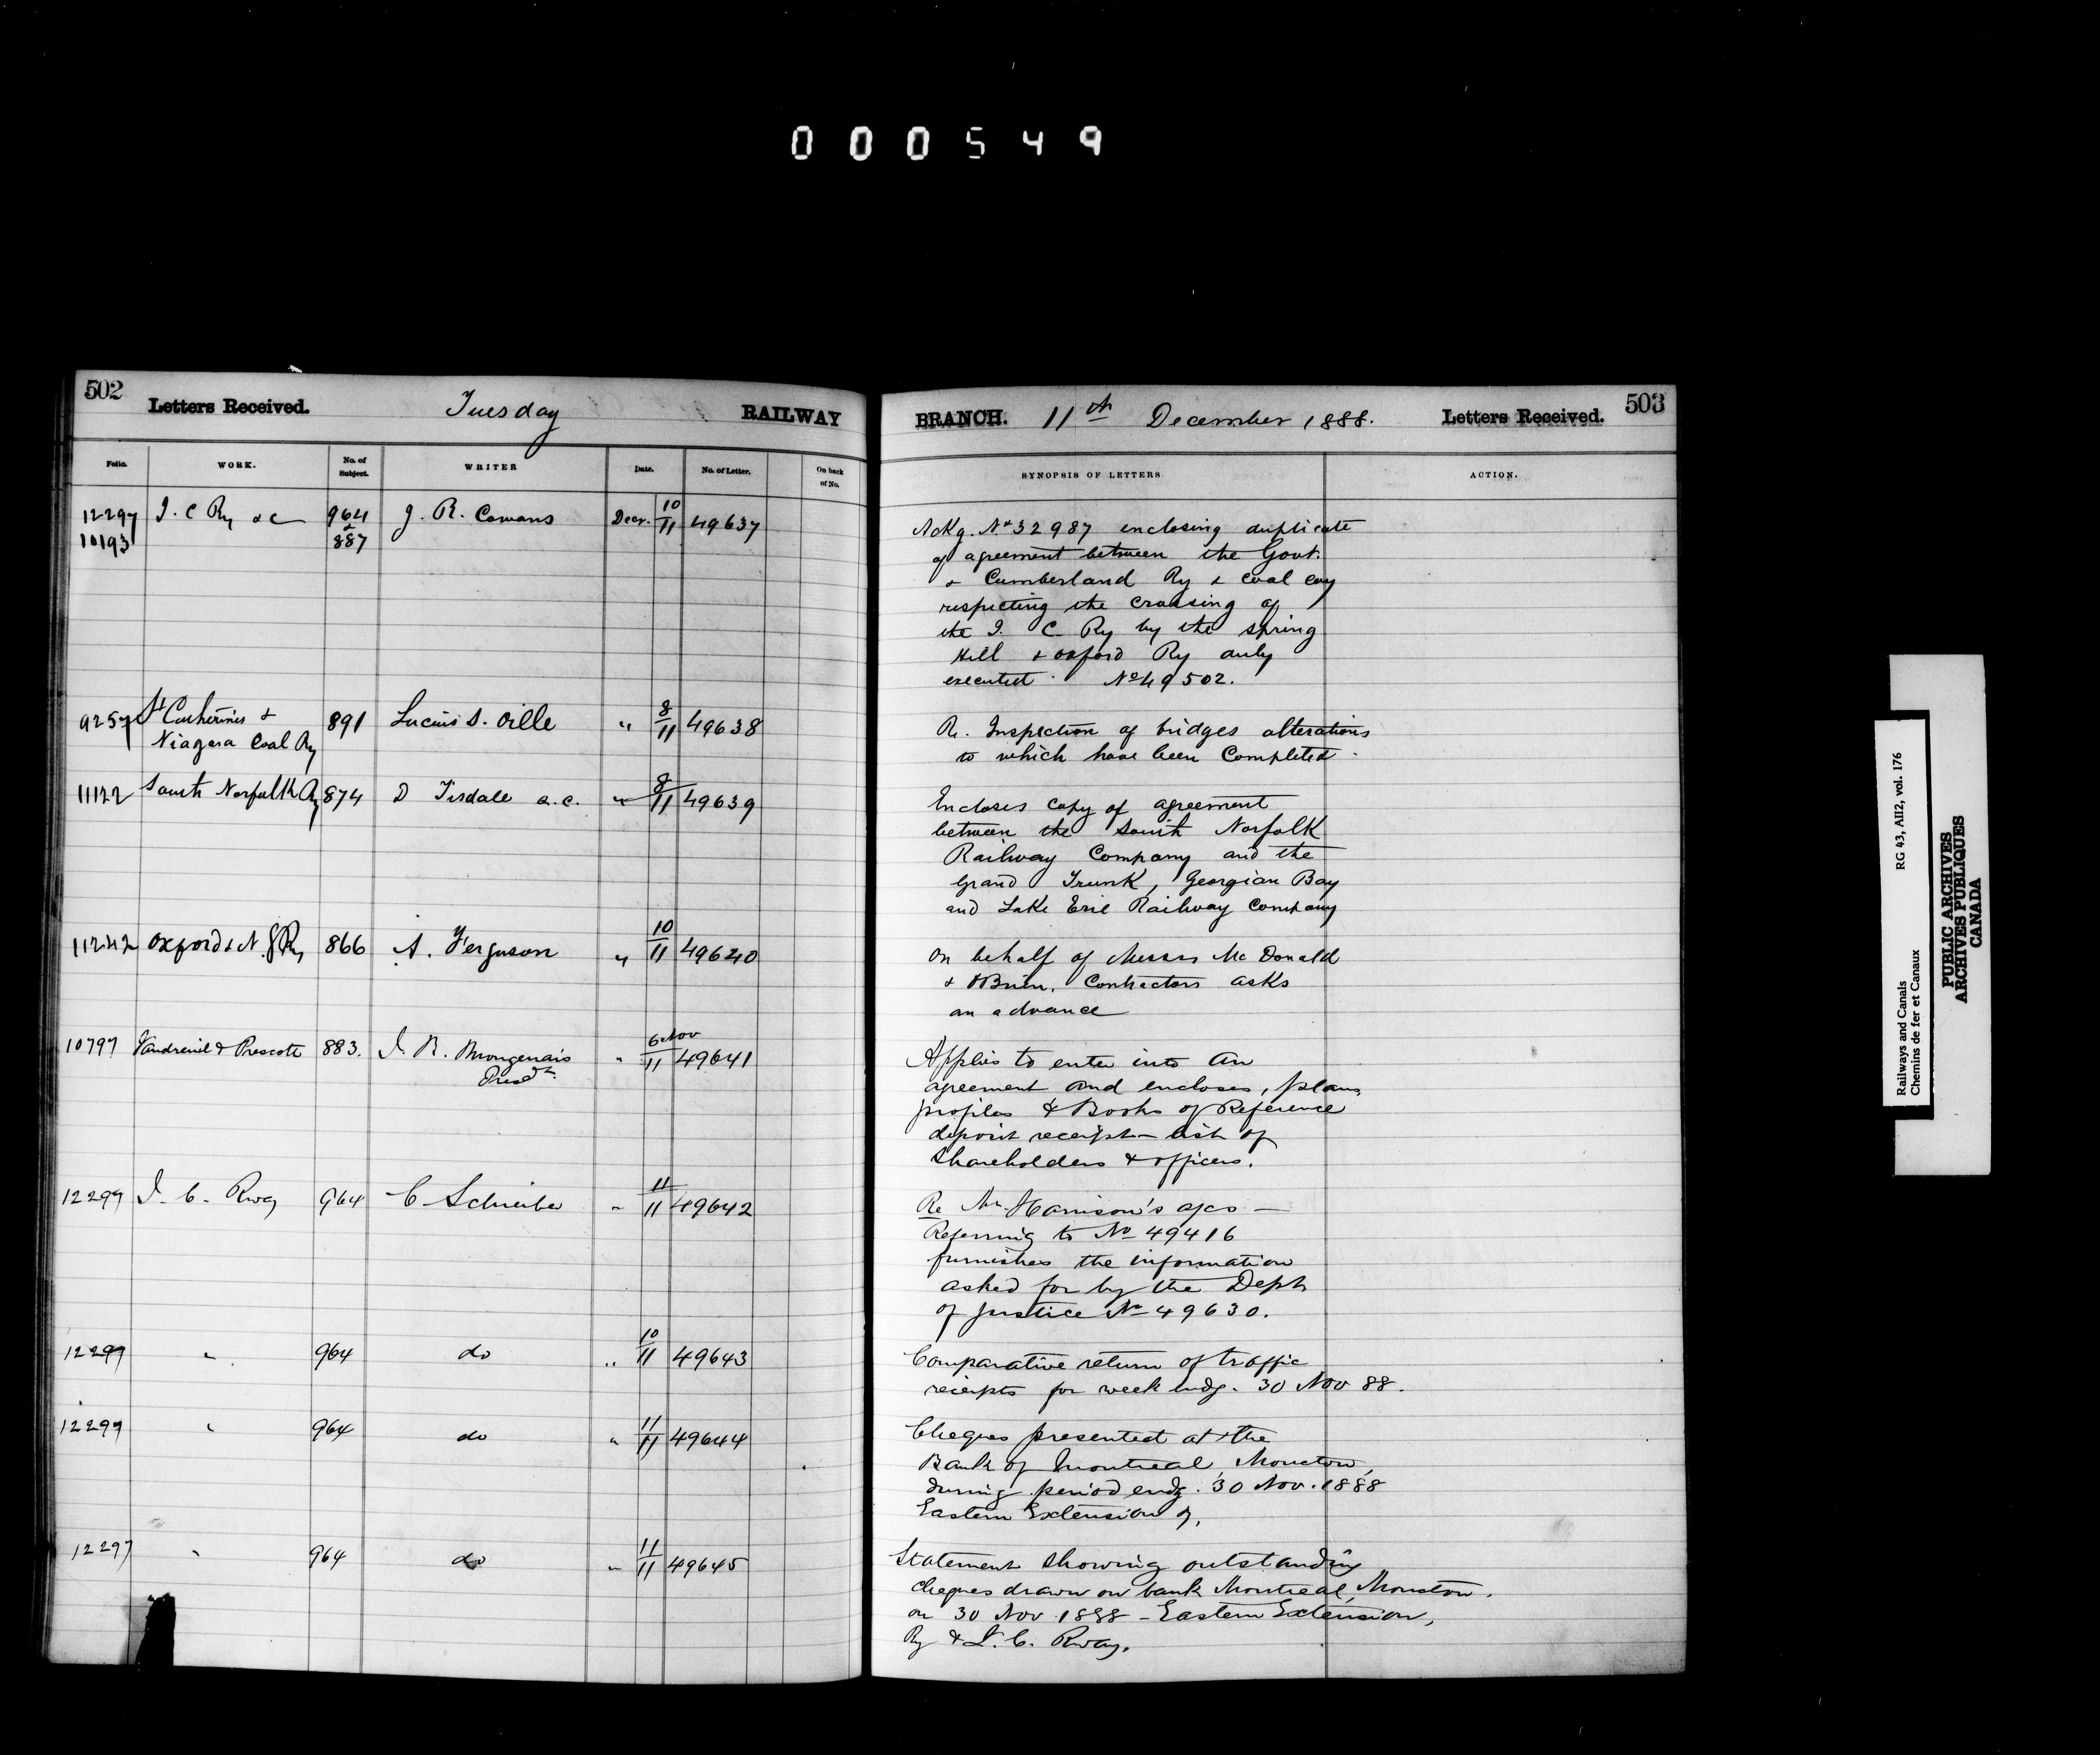 000549
502
Letters Received. Tuesday RAILWAY
Folio. WORK. No. of Subject. WRITER Date. No. of Letter. On back of No.
12297 I. C Ry &c 964 J. R. Cowans Decr. 10/11 49637
10193 & 887
9257 St Catherines & 891 Lucius S. Oille " 8/11 49638
Niagara Coal Ry
11122 South Norfolk Ry 874 D Tisdale Q.C. " 8/11 49639
11242 Oxford & N. G Ry 866 A. Ferguson " 10/11 49640
10797 Vaudreuil & Prescott 883. I. R. Mongenais " 6 Nov/11 49641
Presdt.
12297 I. C. Rway 964 C Schreiber " 11/11 49642
12297 " 964 do " 10/11 49643
12297 " 964 do " 11/11 49644
12297 " 964 do " 11/11 49645
BRANCH. 11th December 1888. Letters Received. 503
SYNOPSIS OF LETTERS ACTION.
AcKg. No 32987 enclosing duplicate
of agreement between the Govt.
& Cumberland Ry & Coal Coy
respecting the crossing of
the I. C. Ry by the Spring
Hill & Oxford Ry duly
executed. No 49502.
Re. Inspection of bridges alterations
to which have been Completed.
Encloses copy of agreement
between the South Norfolk
Railway Company and the
Grand Trunk, Georgian Bay
and Lake Erie Railway Company
On behalf of Messrs McDonald
& OBrien, Contractors asks
an advance
Applies to enter into an
agreement and encloses, plans,
profiles & Books of Reference
deposit receipt - list of
Shareholders & officers.
Re Mr. Harrison's a/cs —
Referring to No 49416
furnishes the information
asked for by the Dept
of Justice No 49630.
Comparative return of traffic
receipts for week endg. 30 Nov 88.
Cheques presented at the
Bank of Montreal, Moncton,
during period endg. 30 Nov. 1888
Eastern Extension Ry.
Statement showing outstanding
cheques drawn on bank Montreal, Moncton.
on 30 Nov 1888 - Eastern Extension,
Ry & I. C. Rway.
Railways and Canals RG 43, AII2, vol. 176
Chemins de fer et Canaux
PUBLIC ARCHIVES
ARCHIVES PUBLIQUES
CANADA